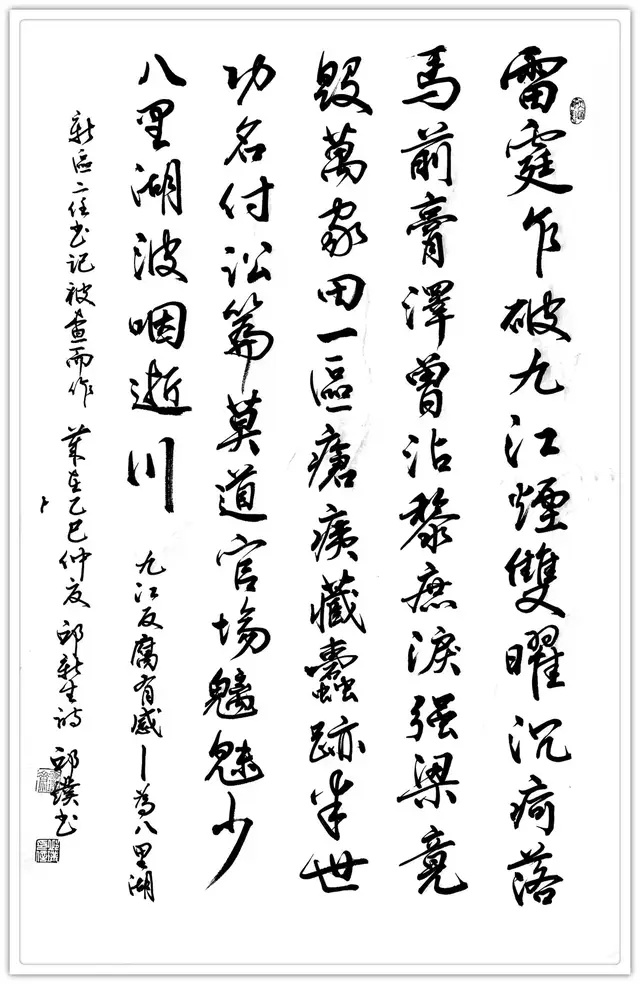 雷霆乍破九江煙雙曜沉疴落
馬前膏澤曾沾黎庶淚强梁竟
毀萬家田一區瘡痍藏蠹跡半世
功名付訟篇莫道官場魑魅少
八里湖波咽逝川 九江反腐有感—為八里湖
新區二任书记被查而作 歲在乙巳仲夏 邱新生詩 邱璞书